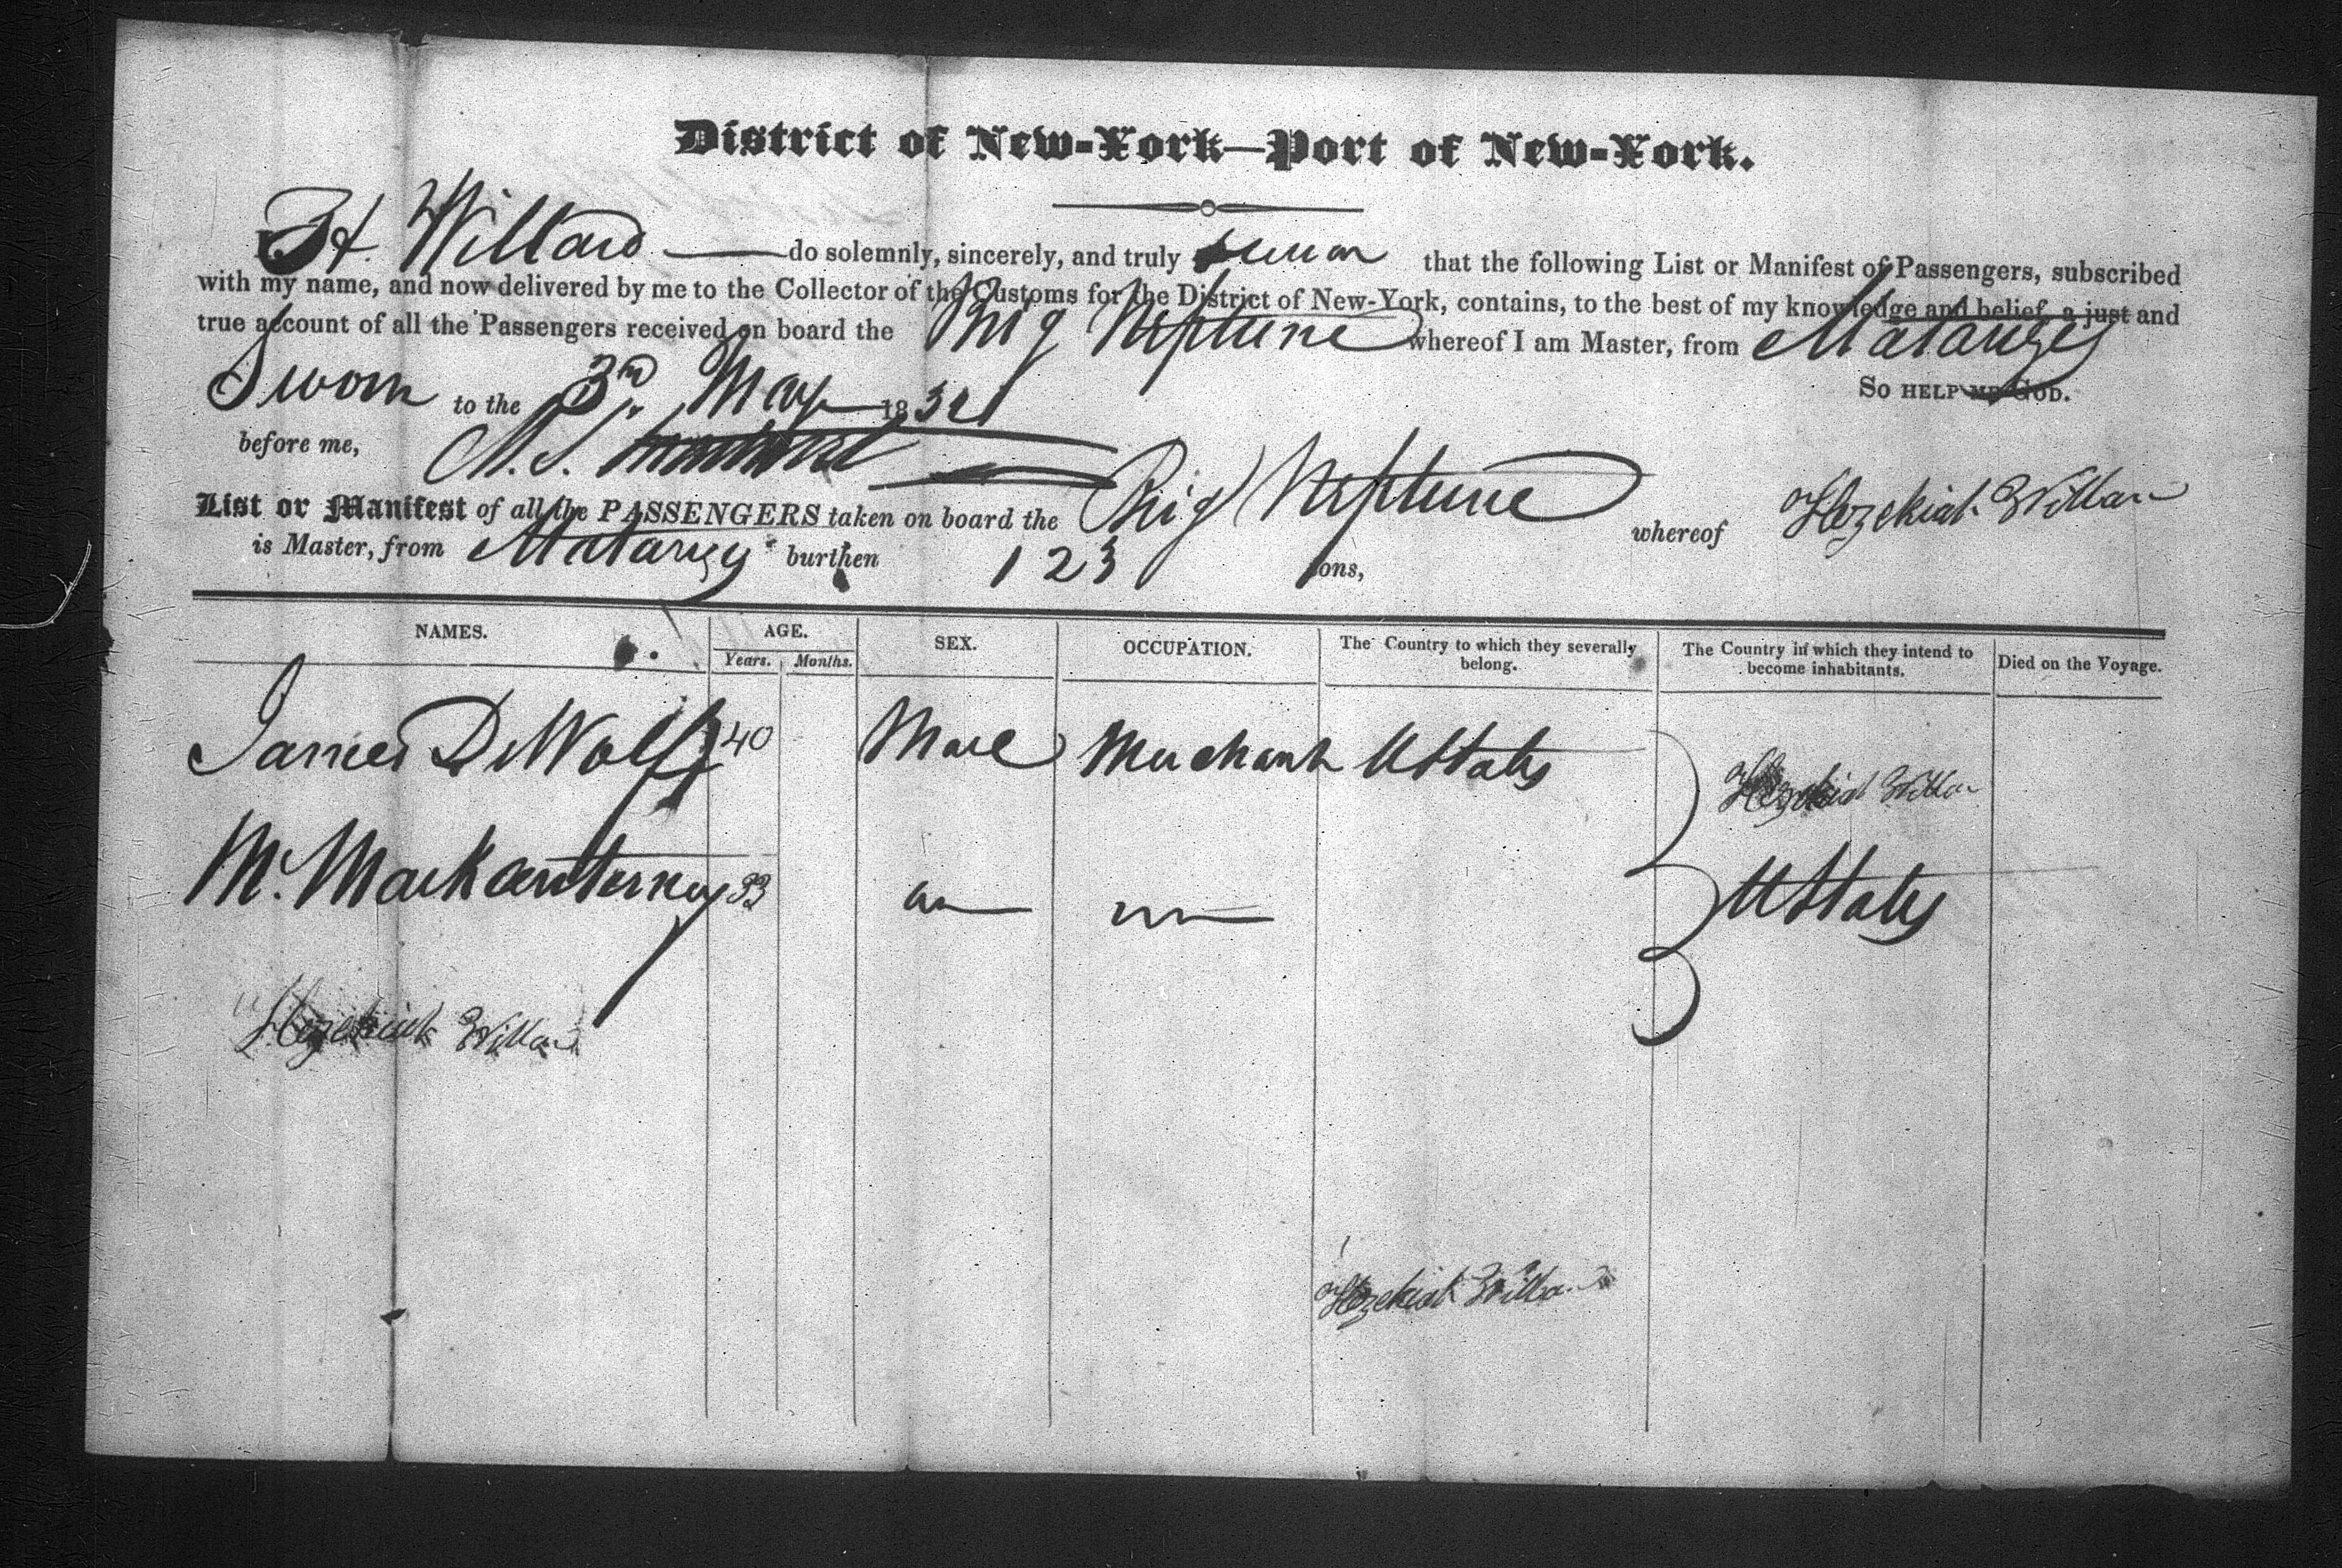 District of New-York—Port of New-York.
I H. Willard — do solemnly, sincerely, and truly swear that the following List or Manifest of Passengers, subscribed
with my name, and now delivered by me to the Collector of the Customs for the District of New-York, contains, to the best of my knowledge and belief, a just and
true account of all the Passengers received on board the Brig Neptune whereof I am Master, from Matanzas
So HELP ME GOD.
Sworn to the 3rd May 18
before me,
List or Manifest of all the PASSENGERS taken on board the Brig Neptune whereof Hezekiah Willard
is Master, from Matanzas burthen 123 tons,
NAMES. AGE. SEX. OCCUPATION. The Country to which they severally belong. The Country in which they intend to become inhabitants. Died on the Voyage.
Years. Months.
James DeWolf 40 Male Merchant UStates
Hezekiah Willard
M. 33 UStates
Hezekiah Willard
Hezekiah Willard